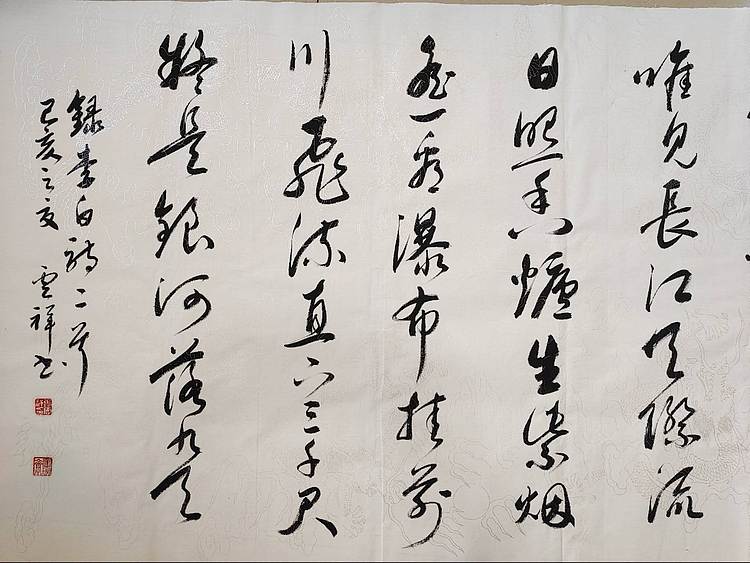 唯見長江天際流
日照香爐生紫烟
遙看瀑布挂前
川飛流直下三千尺
疑是銀河落九天
録李白詩二首
己亥之夏 雲祥書